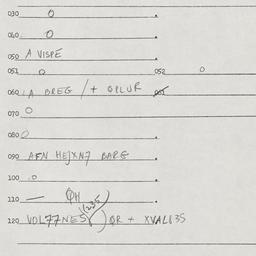 030 O
040 O
050 A VISPE
051 O 052 O
060 A BREG / + OPLUR
070 O
080 O
090 AFN HEJXN7 BARG
100 O
110 — ØH
1235
120 VOL77NES ØR + XVAL135